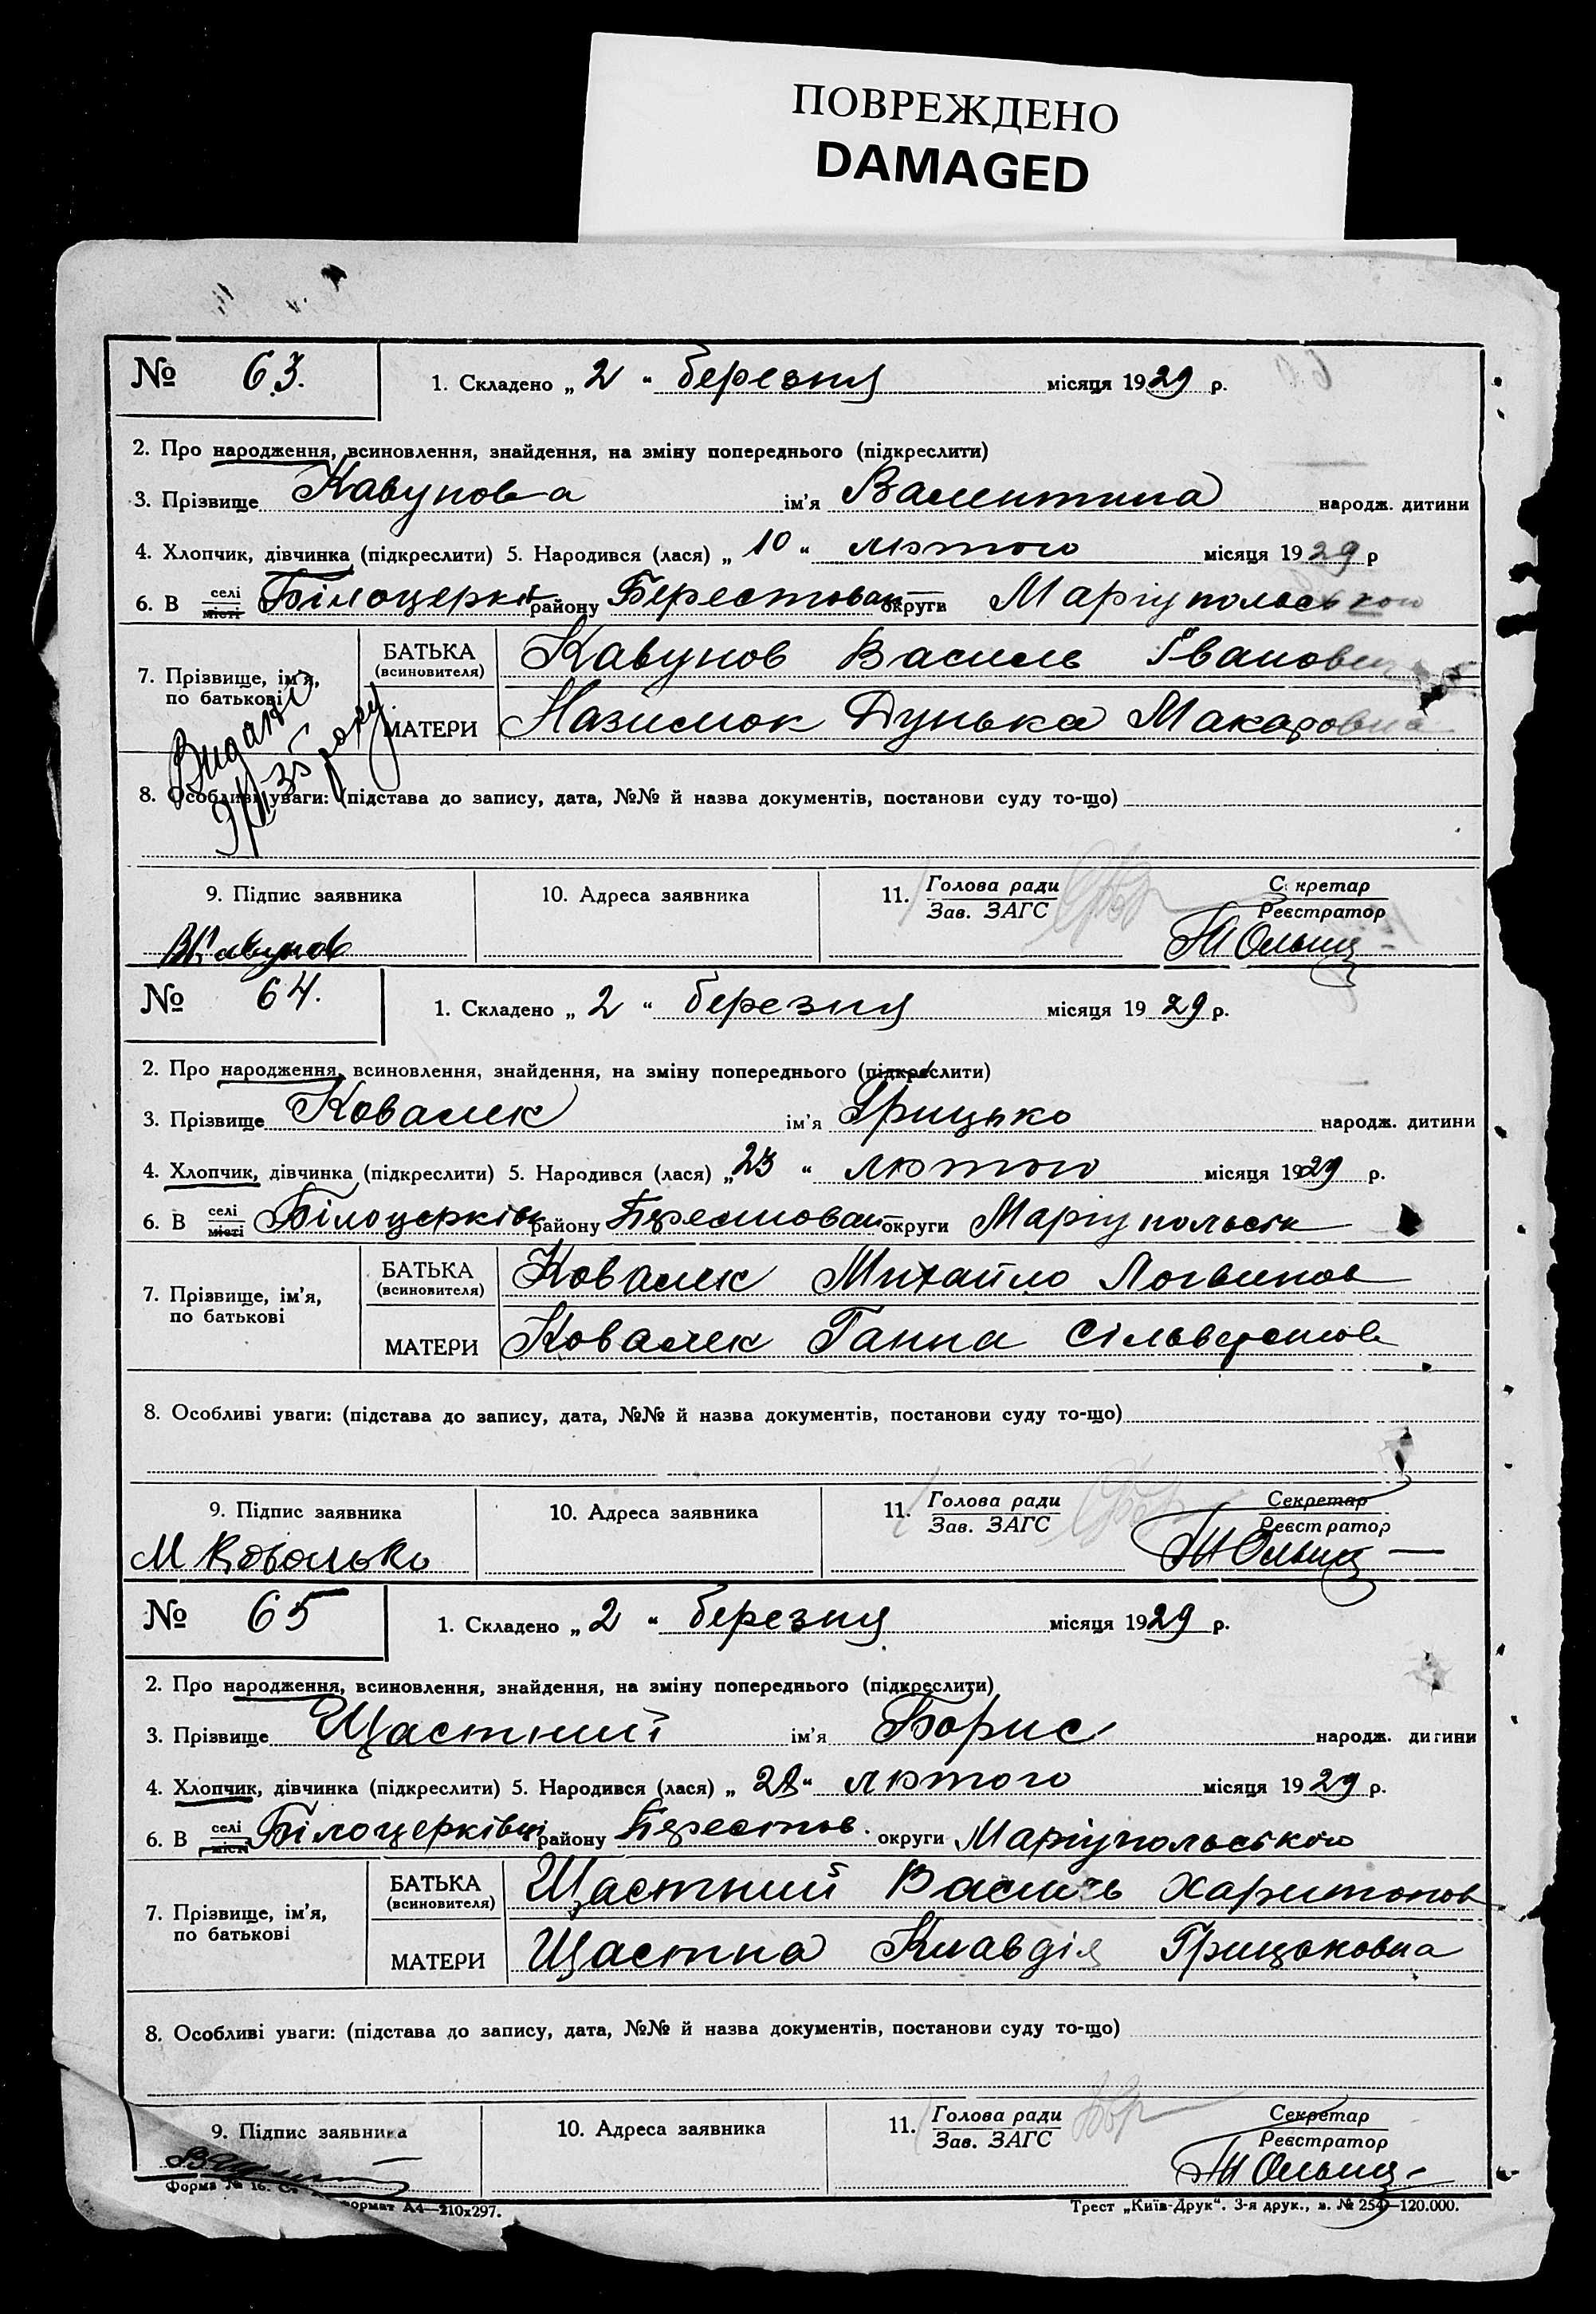 ПОВРЕЖДЕНО
DAMAGED
№ 63. 1. Складено „ 2 “ березня місяця 1929 р.
2. Про народження, всиновлення, знайдення, на зміну попереднього (підкреслити)
3. Прізвище Кавунова ім'я Валентина народж. дитини
4. Хлопчик, дівчинка (підкреслити) 5. Народився (лася) „ 10 “ лютого місяця 1929 р
6. В селі місті Білоцерків району Берестован округи Маріупольською
7. Прізвище, ім'я, по батькові БАТЬКА (всиновителя) Кавунов Василь Іванович
МАТЕРИ Назимок Дунька Макаровна
Видано
року
8. Особливі уваги: (підстава до запису, дата, №№ й назва документів, постанови суду то-що)
9. Підпис заявника 10. Адреса заявника 11. Голова ради Зав. ЗАГС Секретар Реєстратор
ВКавунов
№ 64. 1. Складено „ 2 “ березня місяця 1929 р.
2. Про народження, всиновлення, знайдення, на зміну попереднього (підкреслити)
3. Прізвище Ковалек ім'я Грицько народж. дитини
4. Хлопчик, дівчинка (підкреслити) 5. Народився (лася) „ 23 “ лютого місяця 1929 р.
6. В селі місті Білоцерківц району Берестован округи Маріупольськ
7. Прізвище, ім'я, по батькові БАТЬКА (всиновителя) Ковалек Михайло Логвинов
МАТЕРИ Ковалек Ганна Сільверстов
8. Особливі уваги: (підстава до запису, дата, №№ й назва документів, постанови суду то-що)
9. Підпис заявника 10. Адреса заявника 11. Голова ради Зав. ЗАГС Секретар Реєстратор
М Ковалько
№ 65 1. Складено „ 2 “ березня місяця 1929 р.
2. Про народження, всиновлення, знайдення, на зміну попереднього (підкреслити)
3. Прізвище Щастний ім'я Борис народж. дитини
4. Хлопчик, дівчинка (підкреслити) 5. Народився (лася) „ 28 “ лютого місяця 1929 р.
6. В селі місті Білоцерківці району Берестов. округи Маріупольською
7. Прізвище, ім'я, по батькові БАТЬКА (всиновителя) Щастний Василь Харитонов
МАТЕРИ Щастна Клавдія Грицьковна
8. Особливі уваги: (підстава до запису, дата, №№ й назва документів, постанови суду то-що)
9. Підпис заявника 10. Адреса заявника 11. Голова ради Зав. ЗАГС Секретар Реєстратор
Форма № 16. формат А4—210х297. Трест „Київ-Друк“. 3-я друк., з. № 254—120.000.